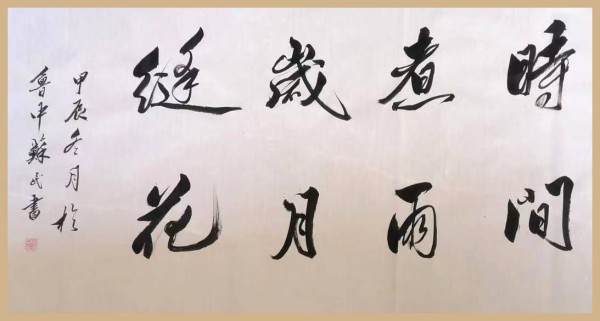 時間
煮雨
歲月
縫花
甲辰冬月於
魯中蘇民書